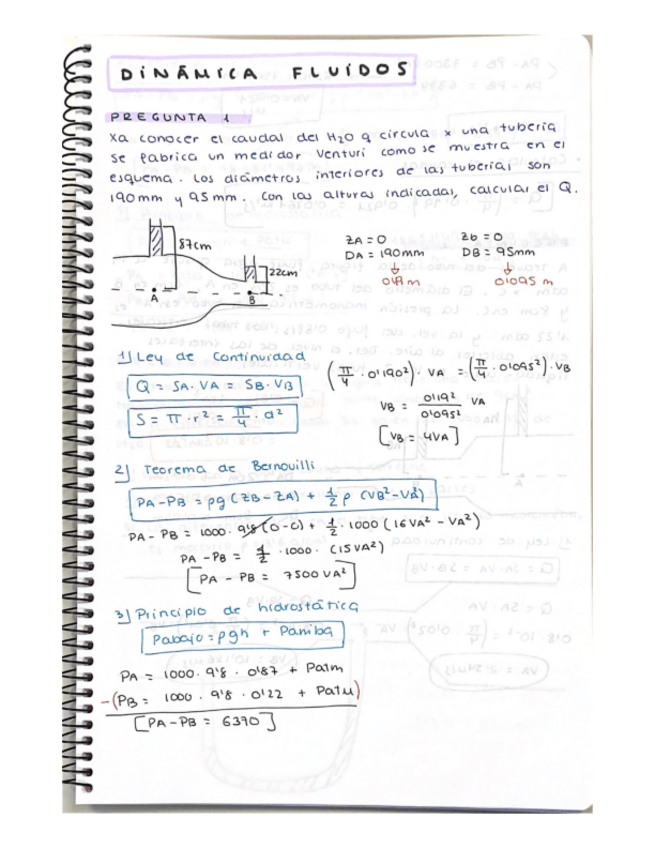 DINÁMICA FLUIDOS
PREGUNTA 1
Xa conocer el caudal del H2O q circula x una tubería
se fabrica un medidor Venturi como se muestra en el
esquema. Los diámetros interiores de las tuberías son
190mm y 95mm. Con las alturas indicadas, calcular el Q.
87cm
22cm
A
B
ZA = 0 Zb = 0
DA = 190mm DB = 95mm
0'19 m 0'095 m
1) Ley de continuidad
Q = SA · VA = SB · VB
S = π · r² = π/4 · d²
(π/4 · 0'190²) · VA = (π/4 · 0'095²) · VB
VB = 0'19²/0'095² VA
[VB = 4VA]
2) Teorema de Bernouilli
PA - PB = ρg (ZB - ZA) + 1/2 ρ (VB² - VA²)
PA - PB = 1000 · 9'8 (0-0) + 1/2 · 1000 (16VA² - VA²)
PA - PB = 1/2 · 1000 · (15VA²)
[PA - PB = 7500 VA²]
3) Principio de hidrostática
Pabajo = ρgh + Parriba
PA = 1000 · 9'8 · 0'87 + Patm
-(PB = 1000 · 9'8 · 0'22 + Patm)
[PA - PB = 6370]